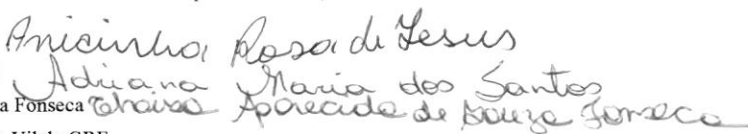 Anicinha Rosa de Jesus
Adriana Maria dos Santos
a Fonseca Thaisa Aparecida de Souza Fonseca